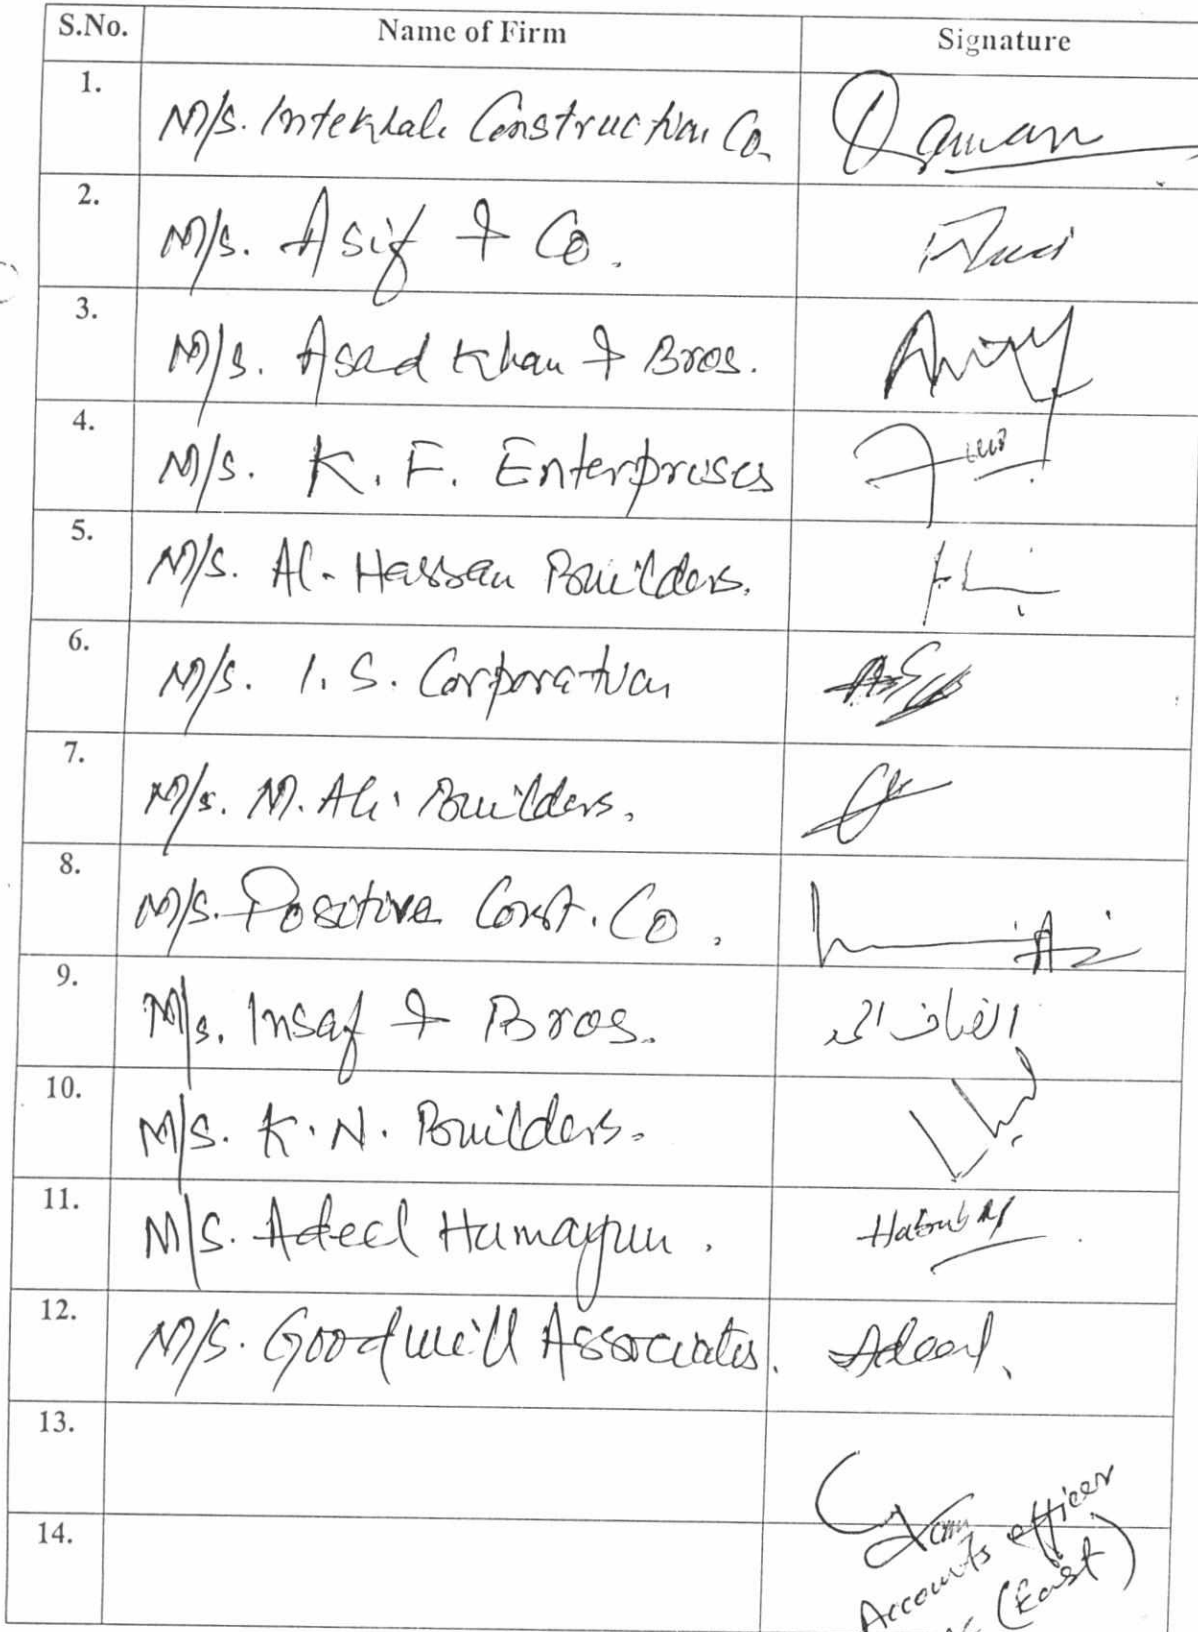 S.No. Name of Firm Signature
1. M/s. Intekhab Construction Co.
2. M/s. Asif & Co.
3. M/s. Asad Khan & Bros.
4. M/s. K. F. Enterprises
5. M/s. Al-Hassan Builders.
6. M/s. I. S. Corporation
7. M/s. M. Ali Builders.
8. M/s. Positive Const. Co.
9. M/s. Insaf & Bros. انصاف احمد
10. M/s. K. N. Builders.
11. M/s. Adeel Humayun.
12. M/s. Goodwill Associates. Adeel.
13.
14.
Accounts officer
(East)